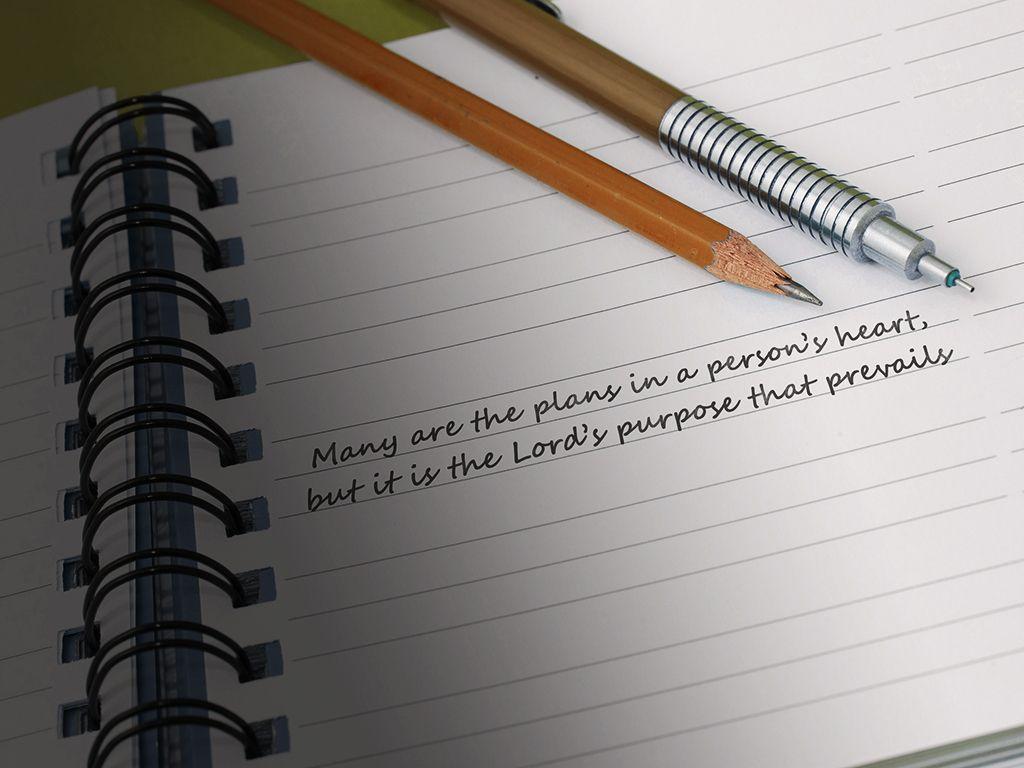 Many are the plans in a person's heart,
but it is the Lord's purpose that prevails